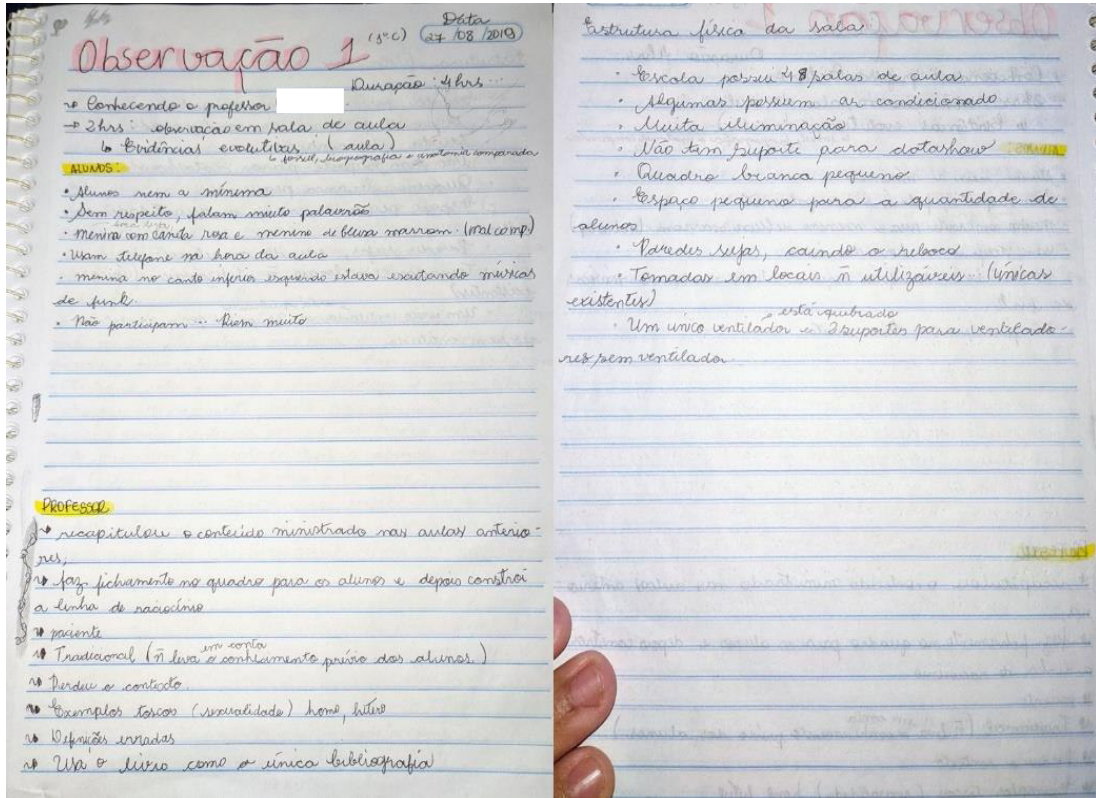 Data
27/08/2019
Observação 1 (3º C)
Duração: 4hrs
Conhecendo o professor
→ 2hrs: observação em sala de aula
↳ Evidências evolutivas (aula)
↳ fóssil, biogeografia e anatomia comparada
ALUNOS:
• Alunos nem a mínima
• Sem respeito, falam muito palavrão
• menina com caneta rosa e menino de blusa marrom. (mal comp.)
• Usam telefone na hora da aula
• menina no canto inferio esquerdo estava escutando músicas
de funk.
• Não participam... Riem muito
PROFESSOR
recapitulou o conteúdo ministrado nas aulas anterio-
res;
faz fichamento no quadro para os alunos e depois constroi
a linha de raciocínio
paciente
em conta
Tradicional (ñ leva o conhecimento prévio dos alunos.)
Perdeu o contexto.
Exemplos toscos (sexualidade) homo, hétero
Definições erradas
Usa o livro como a única bibliografia
Estrutura física da sala
• Escola possui 18 salas de aula
• Algumas possuem ar condicionado
• Muita iluminação
• Não tem suporte para datashow
• Quadro branco pequeno
• Espaço pequeno para a quantidade de
alunos
• Paredes sujas, caindo o reboco
• Tomadas em locais ñ utilizáveis... (únicas
existentes)
está quebrado
• Um único ventilador e 3 suportes para ventilado-
res sem ventilador.